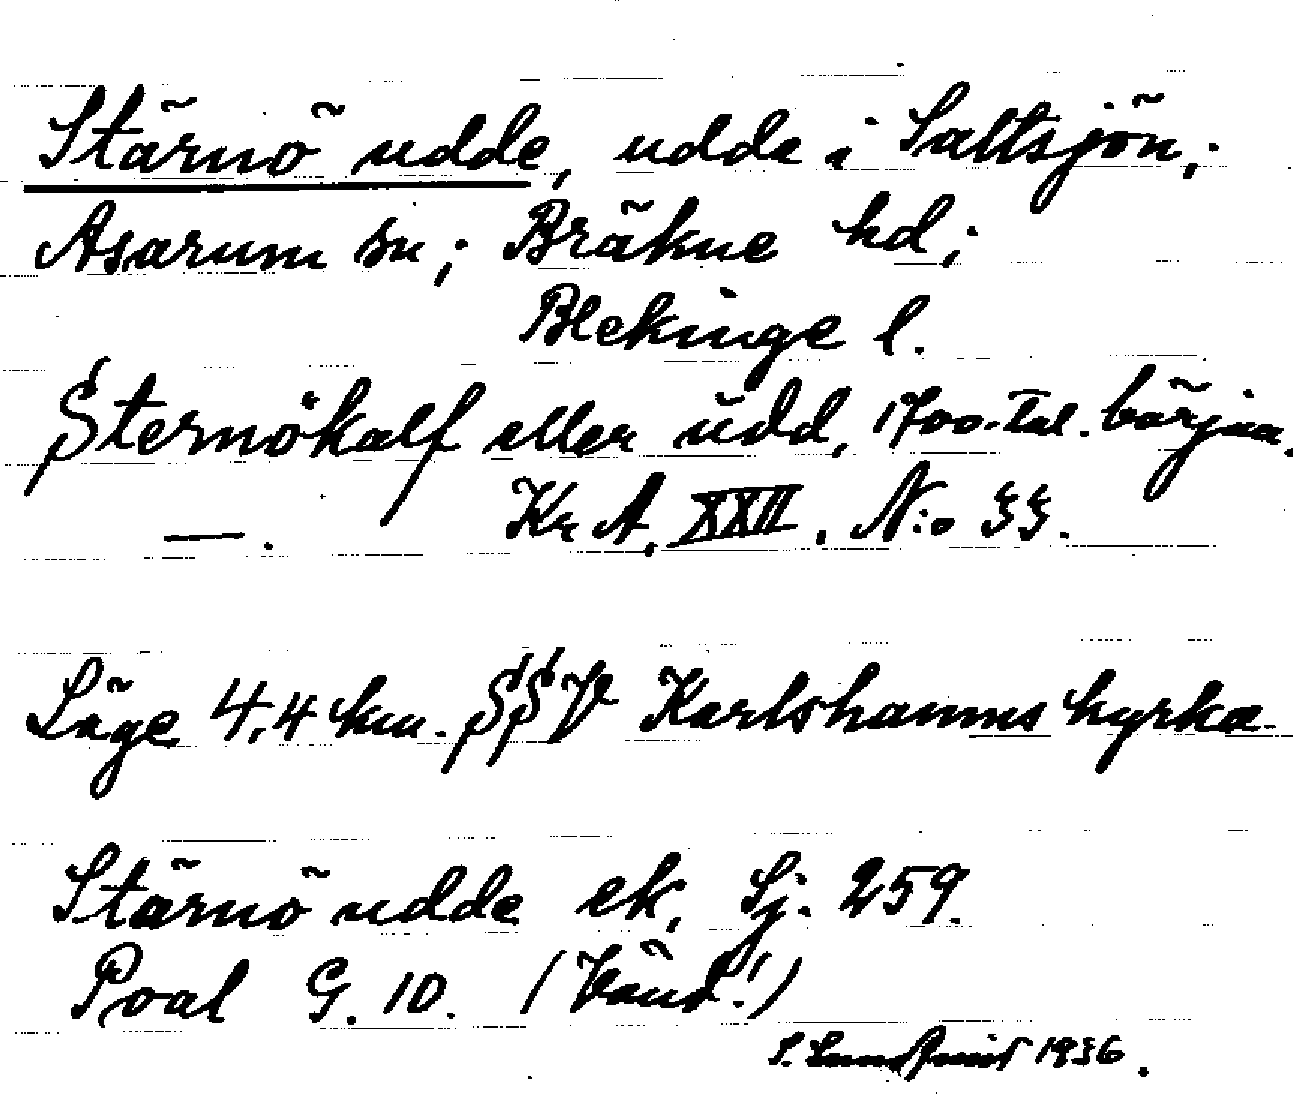 Stärnö udde, udde i Saltsjön,
Asarum sn; Bräkne hd;
Blekinge l.
Sternökalf eller udd, 1700-tal. början.
—. Kr A, XXII. N:o 33.
Läge 4,4 km. SSV Karlshamns kyrka.
Stärnö udde ek, Sj. 259.
Poal G. 10. (Vänd!)
S. Lundquist 1936.